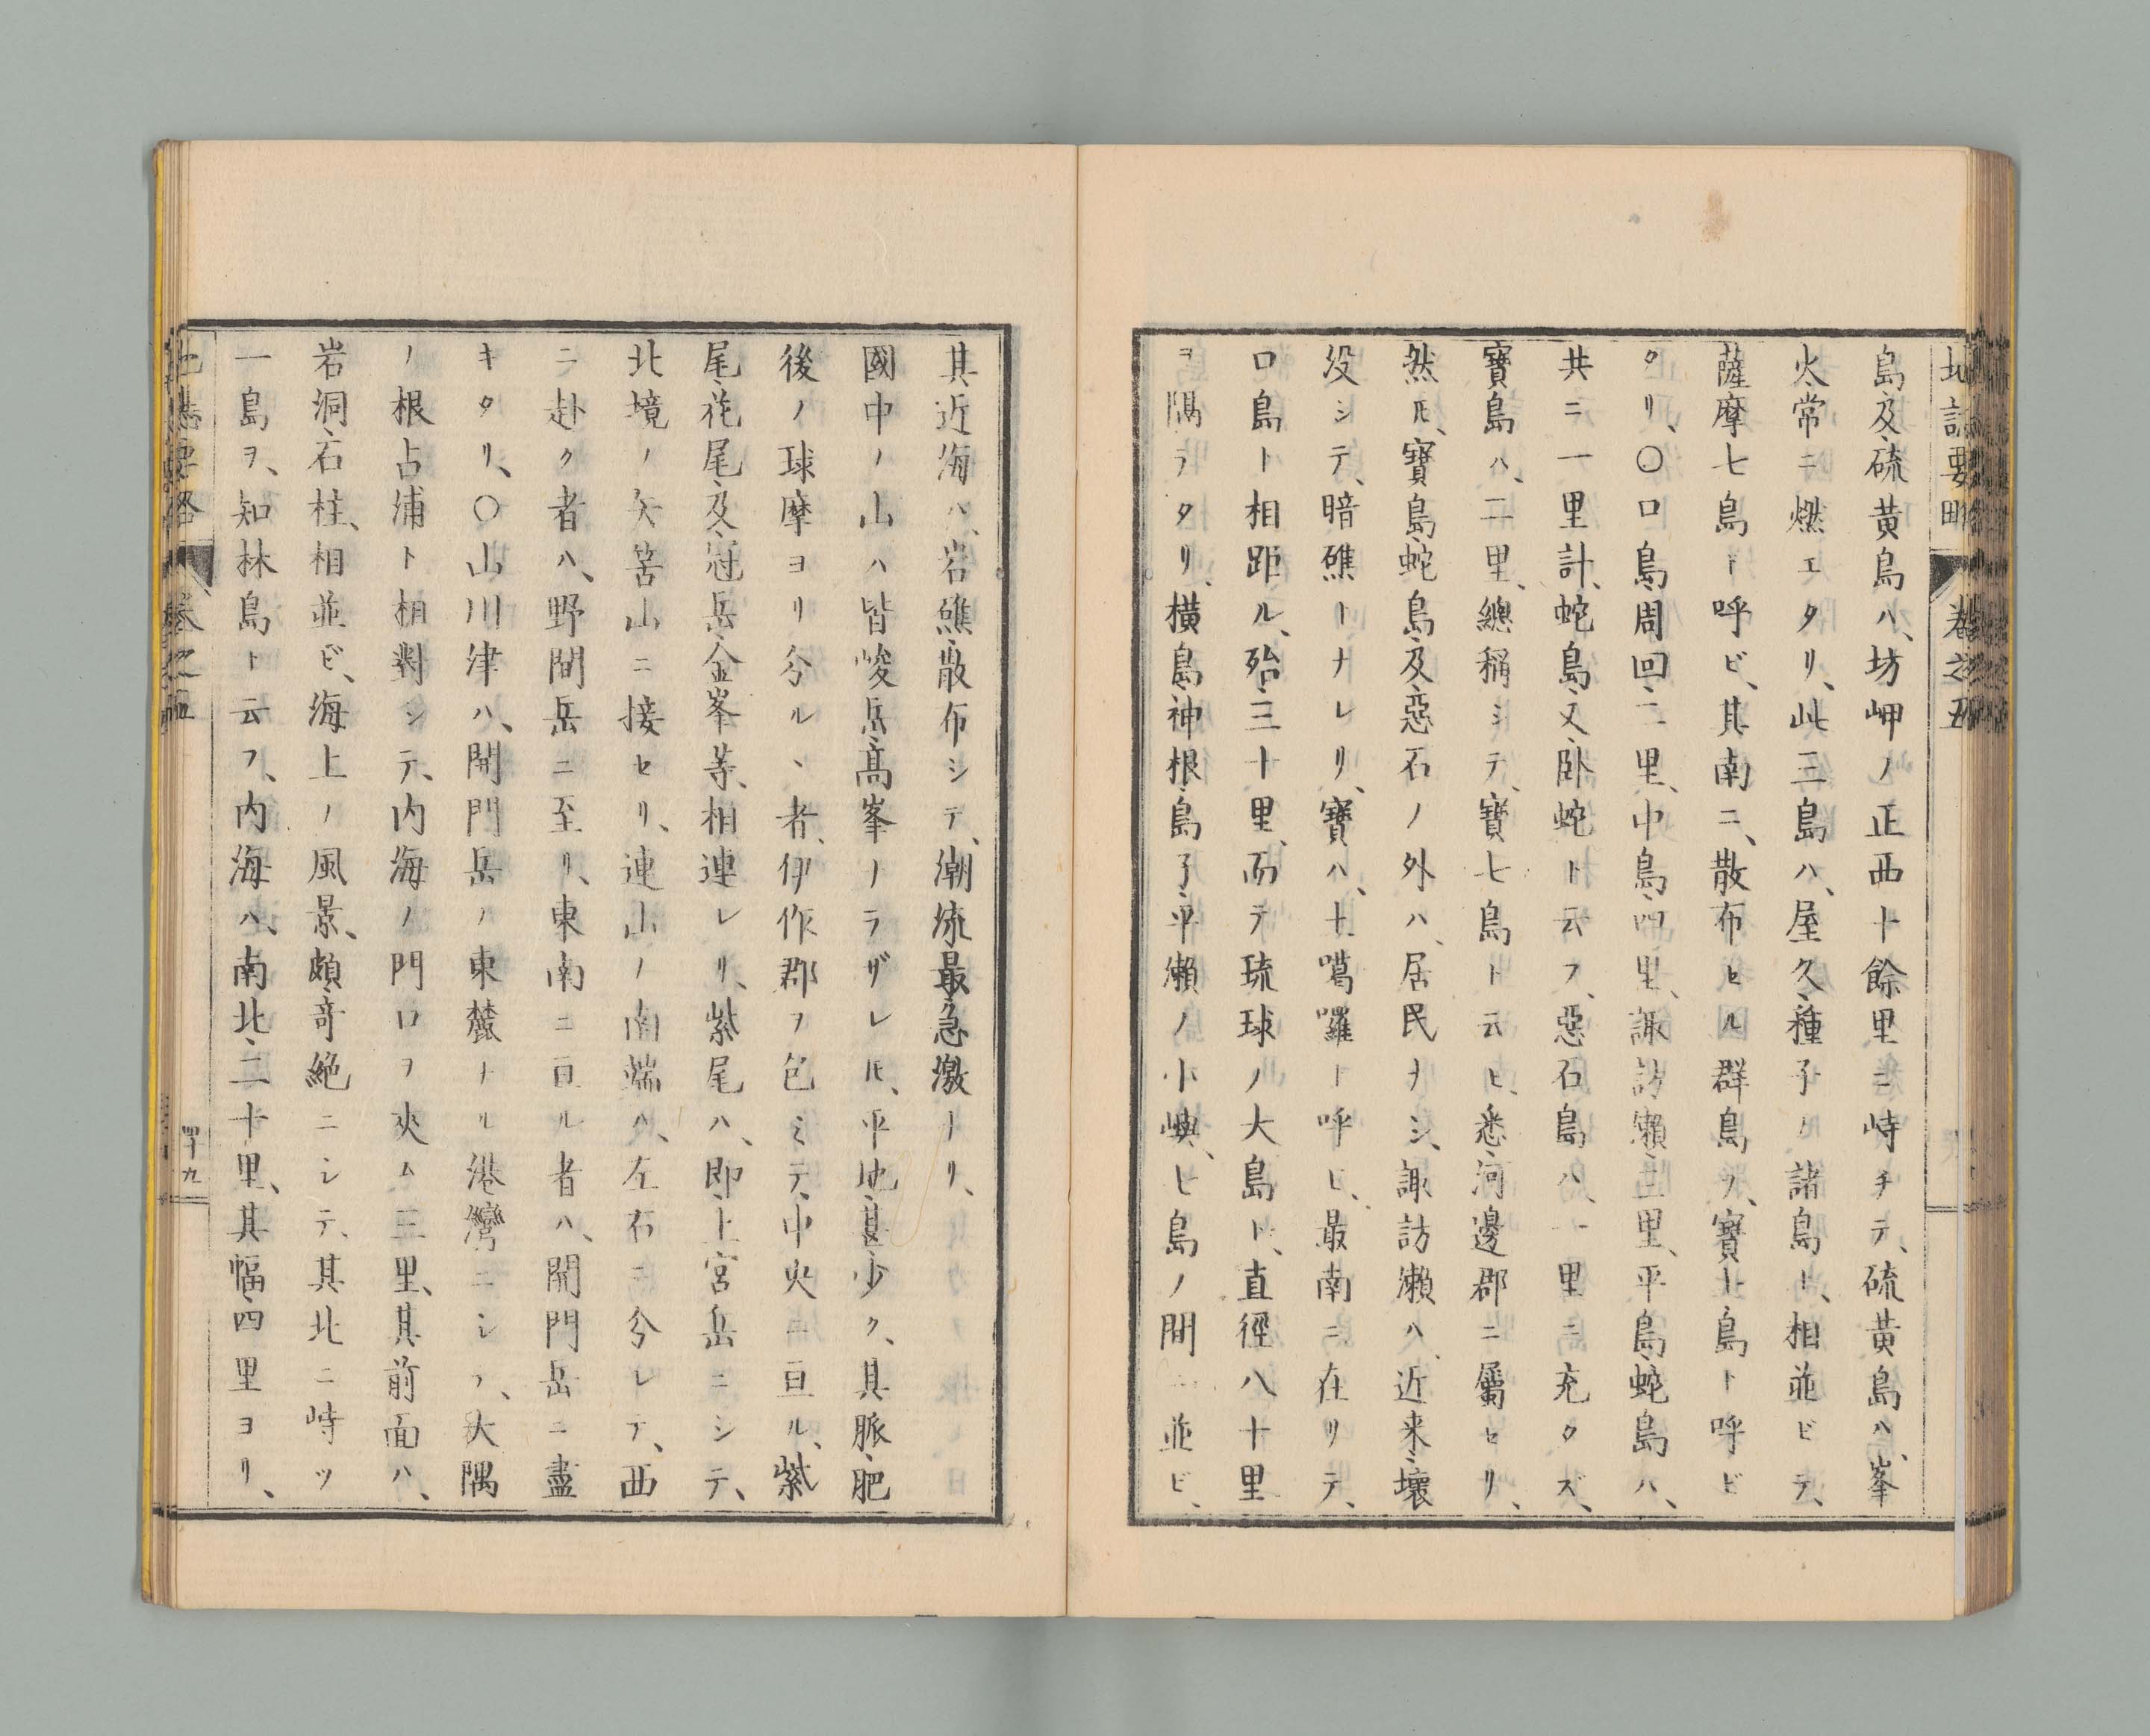 地誌要略 卷之五
島及硫黄島ハ、坊岬ノ正西十餘里ニ峙チテ、硫黄島ハ、峯
火常ニ燃エタリ、此三島ハ、屋久種子ノ諸島ト、相並ビテ、
薩摩七島ト呼ビ、其南ニ、散布セル群島ヲ、寶七島ト呼ビ
タリ、〇口島周回二里、中島四里、諏訪瀬三里、平島蛇島ハ、
共ニ一里計、蛇島又臥蛇ト云フ、惡石島ハ、一里ニ充タズ、
寶島ハ、二里、總稱シテ、寶七島ト云ヒ、悉河邊郡ニ屬セリ、
然𪜈、寶島蛇島及惡石ノ外ハ、居民ナシ、諏訪瀬ハ、近来壞
没シテ、暗礁トナレリ、寶ハ、土噶囉ト呼ビ、最南ニ在リテ、
口島ト相距ル、殆三十里、而テ琉球ノ大島ト、直徑八十里
ヲ隔ラタリ、横島神根島子平瀬ノ小嶼、七島ノ間ニ並ビ、
其近海ハ、岩礁散布シテ、潮流最急激ナリ、
國中ノ山ハ皆峻岳高峯ナラザレ𪜈、平地甚少ク、其脈肥
後ノ球摩ヨリ分ルヽ者、伊作郡ヲ包ミテ、中央ニ亘ル、紫
尾花尾及冠岳金峯等、相連レリ、紫尾ハ、即上宮岳ニシテ、
北境ノ矢筈山ニ接セリ、連山ノ南端ハ、左右ニ分レテ、西
ニ赴ク者ハ、野間岳ニ至リ、東南ニ亘ル者ハ、開門岳ニ盡
キタリ、〇山川津ハ、開門岳ノ東麓ナル港灣ニシテ、大隅
ノ根占浦ト相對シテ、内海ノ門口ヲ夾ム三里、其前面ハ、
岩洞石柱、相並ビ、海上ノ風景、頗奇絶ニシテ、其北ニ峙ツ
一島ヲ、知林島ト云フ、内海ハ、南北二十里、其幅四里ヨリ、
地誌要略 卷之五 四十九